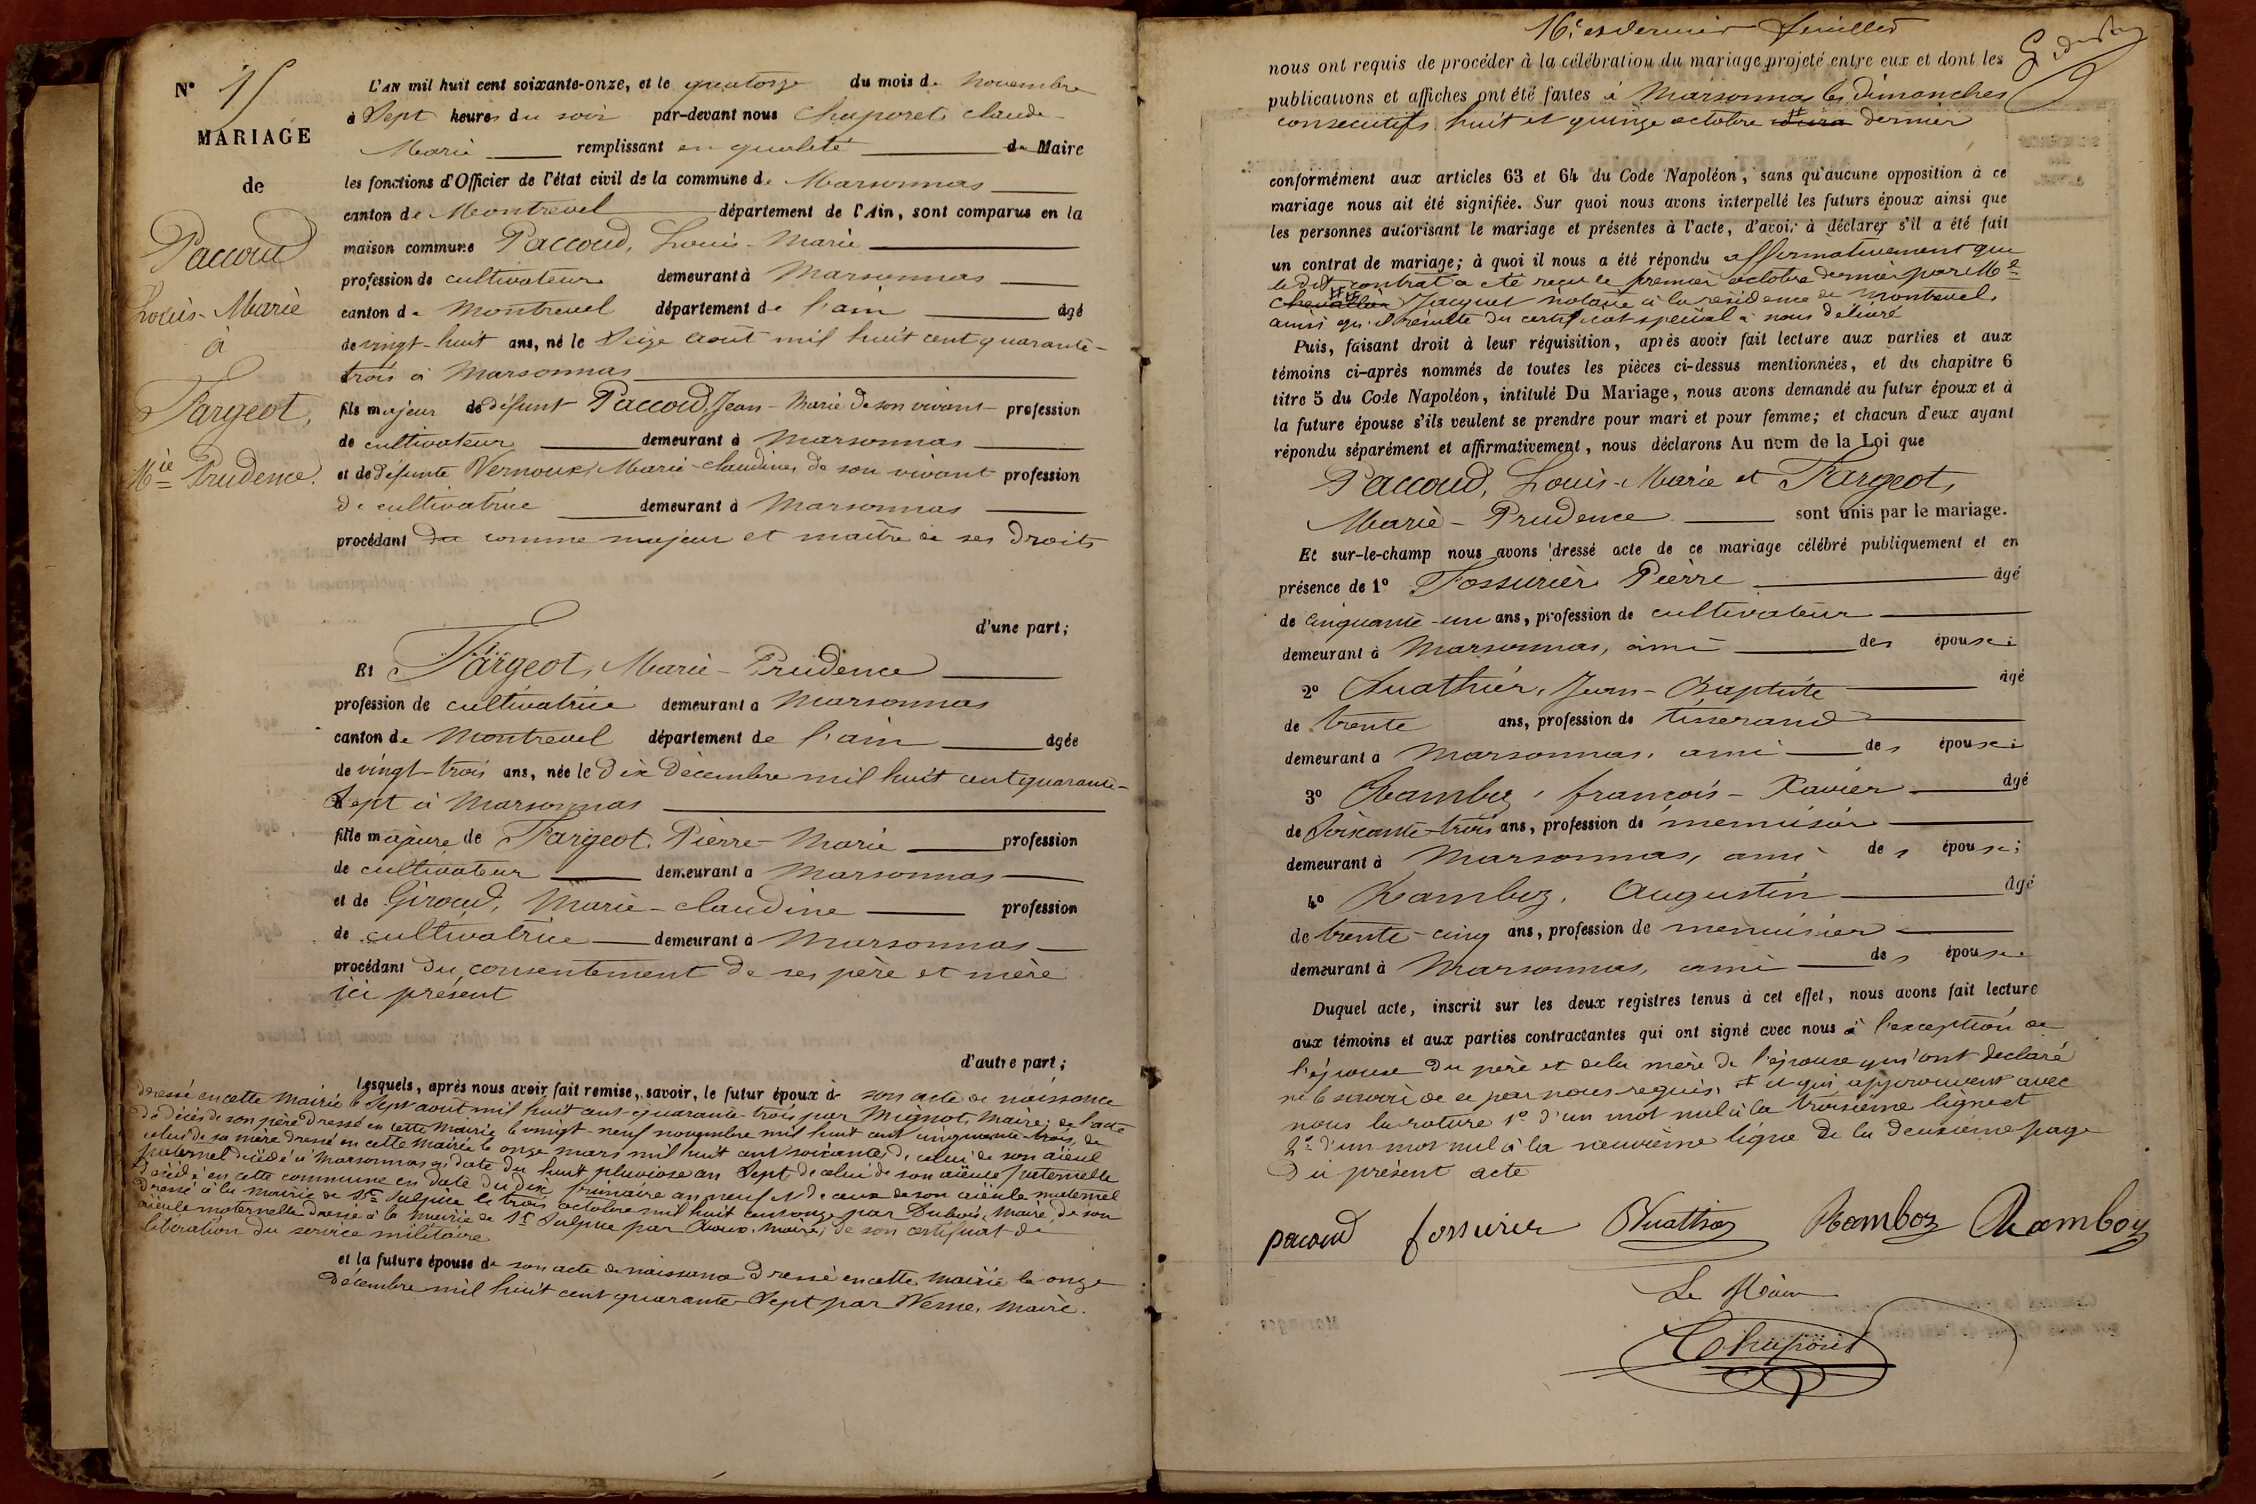 N° 15
MARIAGE
de
Paccoud
Louis-Marie
à
Fargeot,
Mie Prudence.
L'AN mil huit cent soixante-onze, et le quatorze du mois de Novembre
à Sept heures du soir par-devant nous Chaporet, Claude
Marie remplissant en qualité de Maire
les fonctions d'Officier de l'état civil de la commune de Marsonnas
canton de Montrevel département de l'Ain, sont comparus en la
maison commune Paccoud, Louis-Marie
profession de cultivateur demeurant à Marsonnas
canton de Montrevel département de l'ain âgé
de vingt-huit ans, né le Seize août mil huit cent quarante-
trois à Marsonnas
fils majeur de défunt Paccoud, Jean-Marie de son vivant profession
de cultivateur demeurant à Marsonnas
et de défunte Vernoux, Marie-Claudine, de son vivant profession
de cultivatrice demeurant à Marsonnas
procédant comme majeur et maître de ses droits
d'une part;
Et Fargeot, Marie-Prudence
profession de cultivatrice demeurant à Marsonnas
canton de Montrevel département de l'ain âgée
de vingt-trois ans, née le dix Décembre mil huit cent quarante-
Sept à Marsonnas
fille majeure de Fargeot, Pierre-Marie profession
de cultivateur demeurant à Marsonnas
et de Giroud, Marie-Claudine profession
de cultivatrice demeurant à Marsonnas
procédant du consentement de ses père et mère
ici présent
d'autre part;
Lesquels, après nous avoir fait remise, savoir, le futur époux de son acte de naissance
dressé en cette Mairie le Sept août mil huit cent quarante-trois par Mignot, Maire; de l'acte
de décès de son père dressé en cette Mairie le vingt-neuf novembre mil huit cent cinquante-trois, de
celui de sa mère dressé en cette Mairie le onze mars mil huit cent soixante, de celui de son aïeul
paternel décédé à Marsonnas en date du huit pluviose an Sept de celui de son aïeule paternelle
décédé en cette commune en date du dix frimaire an neuf et de ceux de son aïeule maternel
dressé à la Mairie de St Sulpice le trois octobre mil huit cent onze par Dubois, Maire, de son
aïeule maternelle dressé à la Mairie de St Sulpice par Maire, de son certificat de
libération du service militaire
et la future épouse de son acte de naissance dressé en cette Mairie le onze
décembre mil huit cent quarante-Sept par Verne, Maire.
16e et dernier feuillet
nous ont requis de procéder à la célébration du mariage projeté entre eux et dont les
publications et affiches ont été faites à Marsonnas les dimanches
consécutifs huit et quinze octobre dernier
conformément aux articles 63 et 64 du Code Napoléon, sans qu'aucune opposition à ce
mariage nous ait été signifiée. Sur quoi nous avons interpellé les futurs époux ainsi que
les personnes autorisant le mariage et présentes à l'acte, d'avoir à déclarer s'il a été fait
un contrat de mariage; à quoi il nous a été répondu affirmativement que
le dit contrat a été reçu le premier octobre dernier par Me
Chevallier Jacquet notaire à la résidence de Montrevel,
ainsi qu'il résulte du certificat spécial à nous délivré
Puis, faisant droit à leur réquisition, après avoir fait lecture aux parties et aux
témoins ci-après nommés de toutes les pièces ci-dessus mentionnées, et du chapitre 6
titre 5 du Code Napoléon, intitulé Du Mariage, nous avons demandé au futur époux et à
la future épouse s'ils veulent se prendre pour mari et pour femme; et chacun d'eux ayant
répondu séparément et affirmativement, nous déclarons Au nom de la Loi que
Paccoud, Louis-Marie et Fargeot,
Marie-Prudence sont unis par le mariage.
Et sur-le-champ nous avons dressé acte de ce mariage célébré publiquement et en
présence de 1° Fossurier Pierre âgé
de cinquante-un ans, profession de cultivateur
demeurant à Marsonnas, ami des époux;
2° Nuathier, Jean-Baptiste âgé
de trente ans, profession de tisserand
demeurant à Marsonnas, ami des époux;
3° Ramboz, françois-Xavier âgé
de Soixante-trois ans, profession de menuisier
demeurant à Marsonnas, ami des époux;
4° Ramboz, Augustin âgé
de trente-cinq ans, profession de menuisier
demeurant à Marsonnas, ami des époux
Duquel acte, inscrit sur les deux registres tenus à cet effet, nous avons fait lecture
aux témoins et aux parties contractantes qui ont signé avec nous à l'exception de
l'épouse du père et de la mère de l'épouse qui ont déclaré
ne le savoir de ce par nous requis. et qui approuvent avec
nous la rature 1° d'un mot nul à la troisième ligne et
2° d'un mot nul à la neuvième ligne de la deuxième page
du présent acte
pacoud fossurier Nuathier Ramboz Ramboz
Le Maire
Chaporet